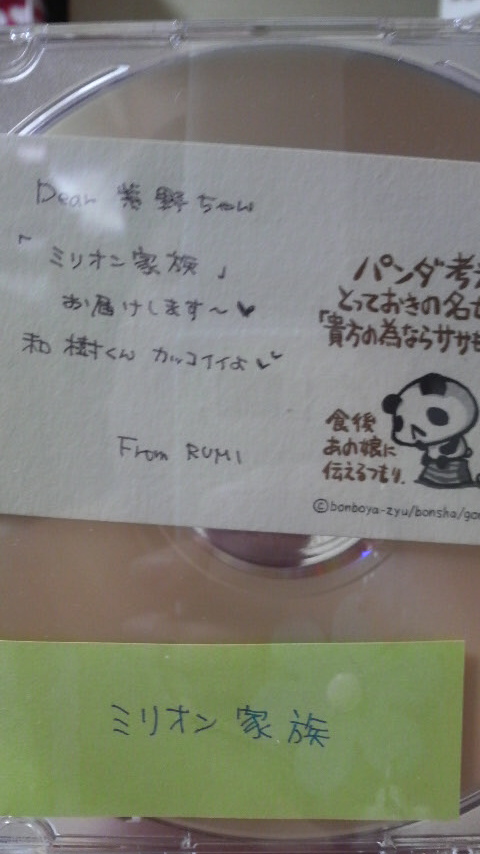 Dear 紫野ちゃん
「ミリオン家族」
お届けします〜♥
和樹くん カッコイイよ♥
From RUMI
パンダ考
とっておきの名
「貴方の為ならササも
食後
あの娘に
伝えるつもり.
©bonboya-zyu/bonsha/go
ミリオン家族